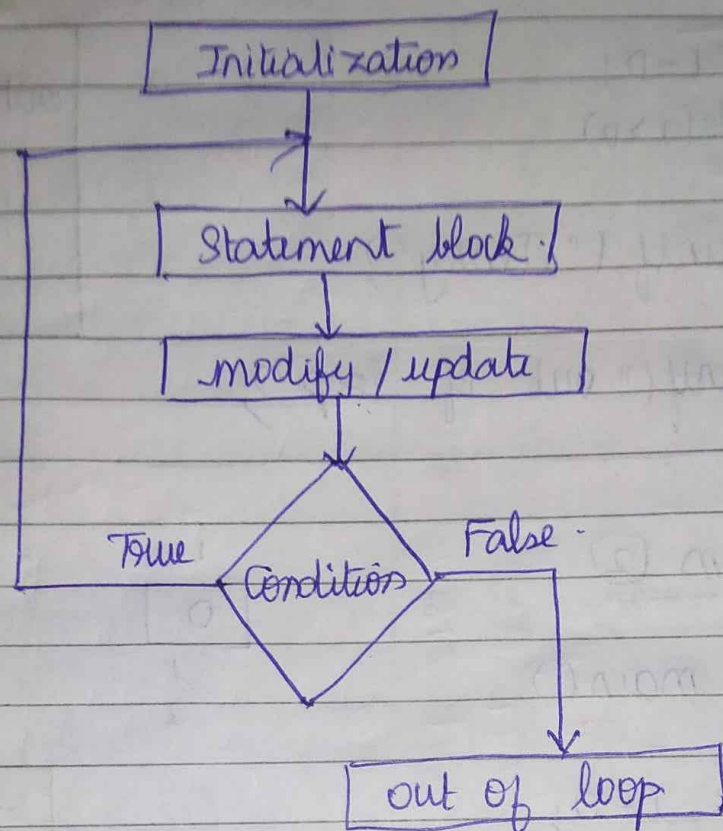 Initialization
Statement block.
modify / update
True
False.
Condition
out of loop
main()